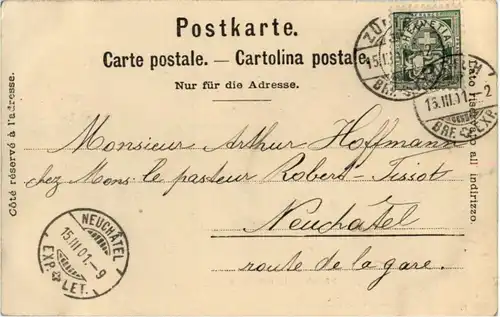 Postkarte.
Carte postale. — Cartolina postale.
Nur für die Adresse.
Côté réservé à l'adresse.
Monsieur Arthur Hoffmann
chez Mons. le pasteur Robert-Tissot
Neuchâtel
route de la gare.
NEUCHÂTEL
15.III.01.–9
EXP. LET.
15.III.01.–2
BRF. EXP.
Lato ris
o all indirizzo.